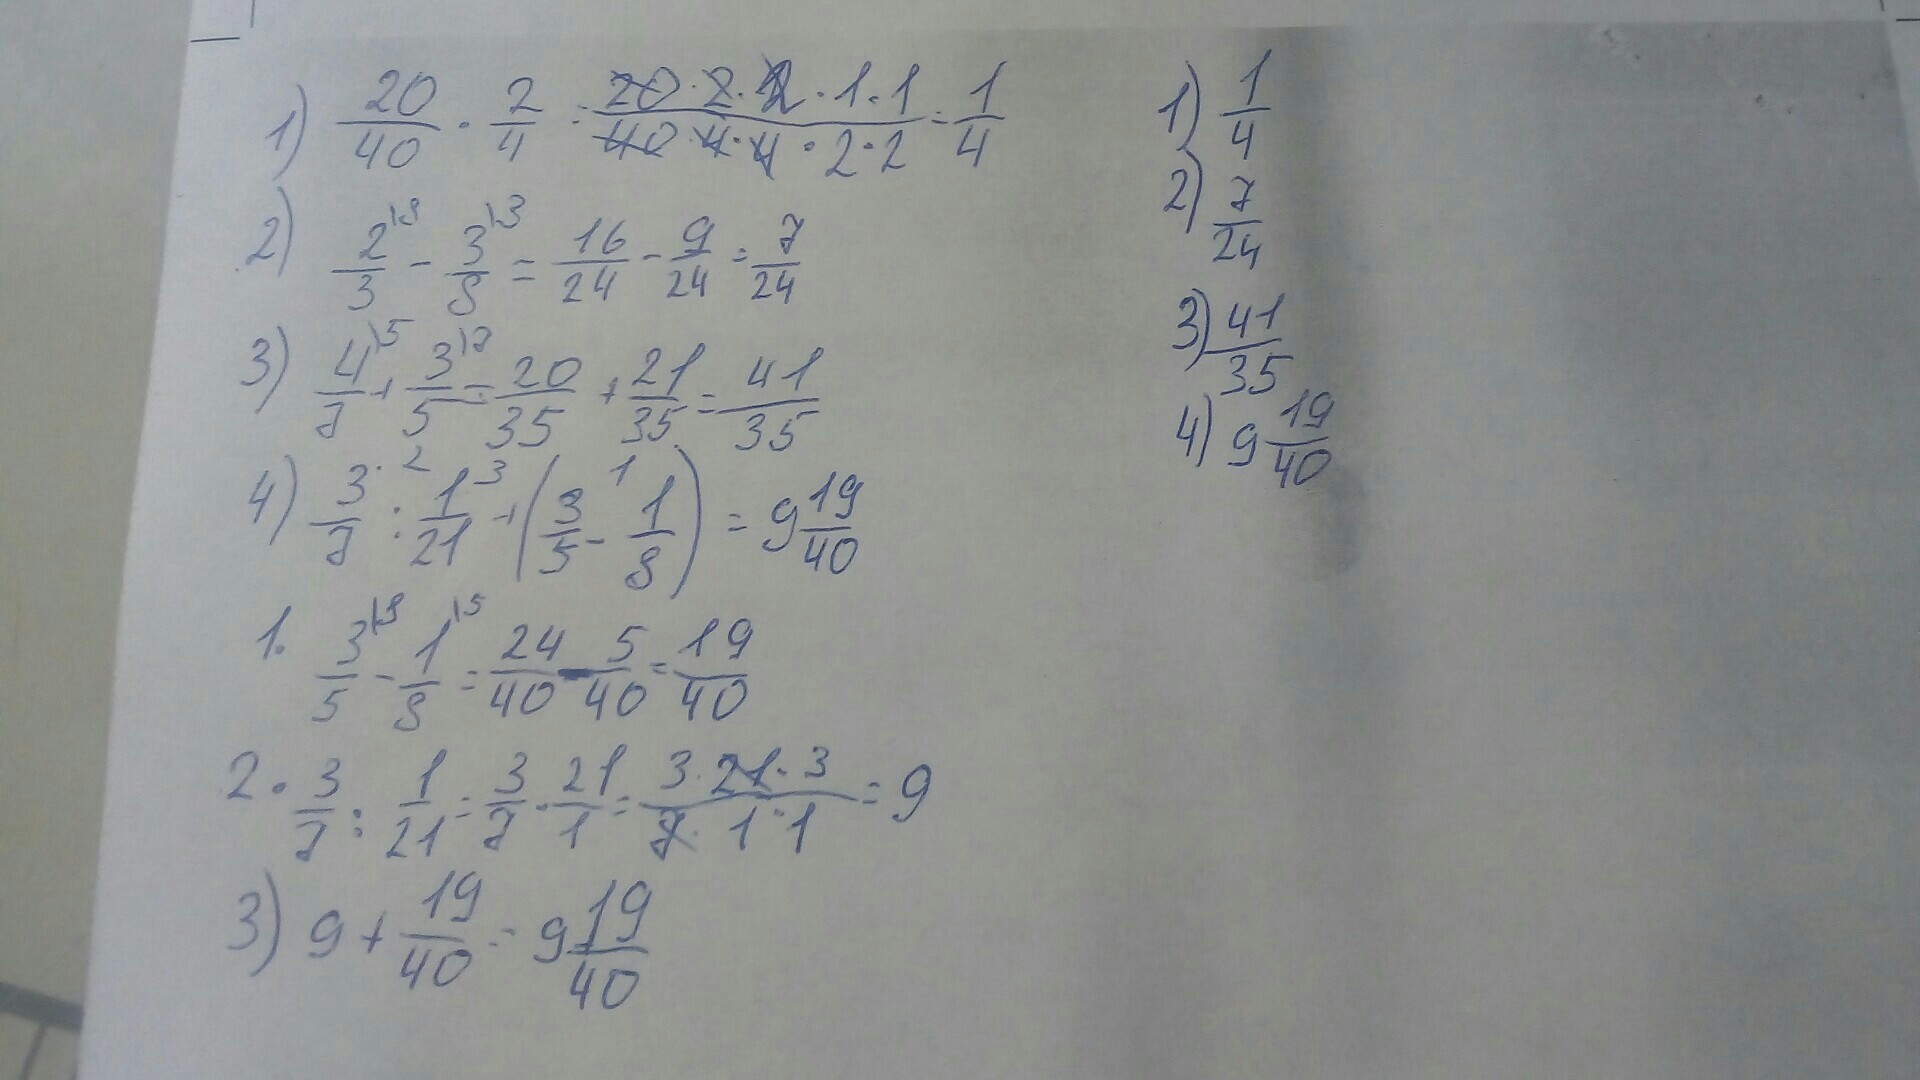 1) 20/40 · 2/4 = 20·2·2·1·1/40·4·4·2·2 = 1/4
2) 2\8/3 - 3\3/8 = 16/24 - 9/24 = 7/24
3) 4\5/7 + 3\7/5 = 20/35 + 21/35 = 41/35
4) 3/7 :² 1/21 +³ (3/5 -¹ 1/8) = 9 19/40
1. 3\8/5 - 1\5/8 = 24/40 - 5/40 = 19/40
2. 3/7 : 1/21 = 3/7 · 21/1 = 3·21·3/7·1·1 = 9
3) 9 + 19/40 = 9 19/40
1) 1/4
2) 7/24
3) 41/35
4) 9 19/40